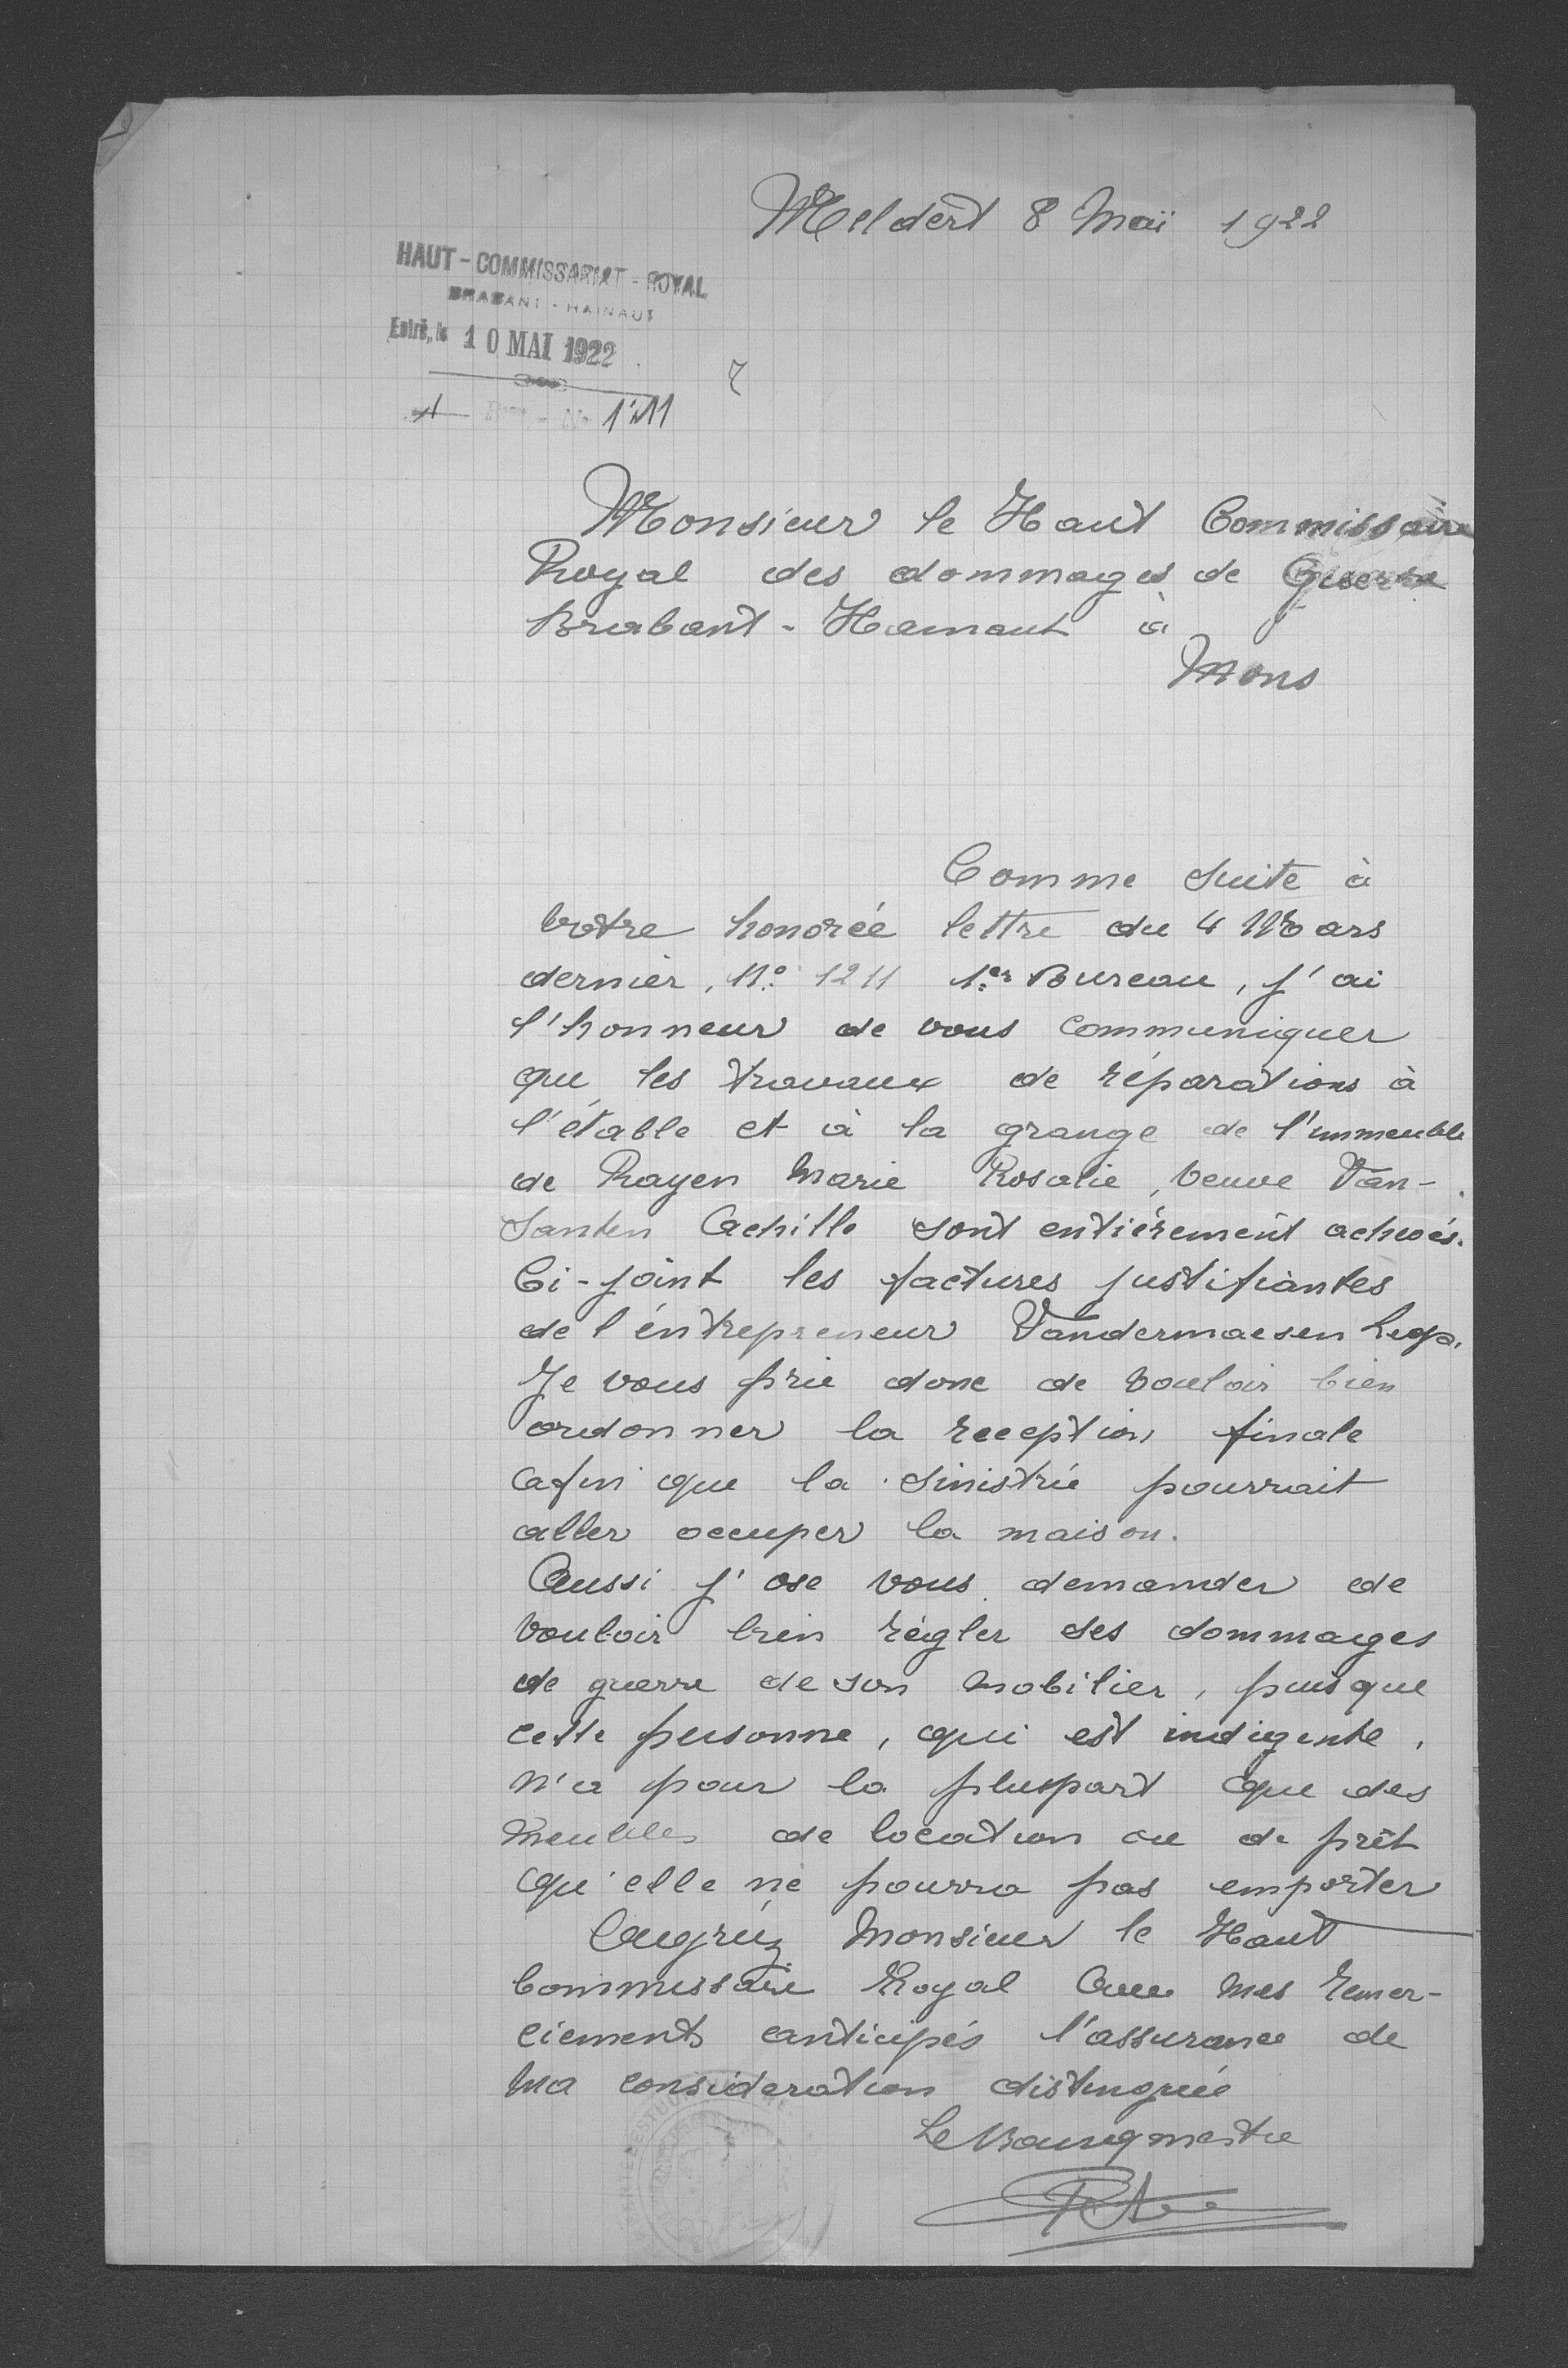 Meldert 8 Maï 1922
HAUT-COMMISSARIAT-ROYAL
BRABANT-HAINAUT
Entré, le 10 MAI 1922
Monsieur le Haut Commissaire
Royal des dommages de Guerre
Brabant-Hainaut à
Mons
Comme suite à
votre honorée lettre du 4 Mars
dernier, No 1211 1er Bureau, j'ai
l'honneur de vous communiquer
que les travaux de réparations à
l'étable et à la grange de l'immeuble
de Rayen Marie Rosalie, veuve Van-
Santen Achille sont entièrement achevés.
Ci-joint les factures justifiantes
de l'éntrepreneur Vandermaesen
Je vous prie donc de vouloir bien
ordonner la reception finale
afin que la sinistrée pourrait
aller occuper la maison.
Aussi j'ose vous demander de
vouloir bien règler ses dommages
de guerre de son mobilier, puisque
cette personne, qui est indigente,
n'a pour la pluspart que des
meubles de location ou de prêt
qu'elle ne pourra pas emporter
Augréez Monsieur le Haut
Commissaire Royal avec mes remer-
ciements anticipés l'assurance de
ma consideration distinguée
Le Bourgmestre